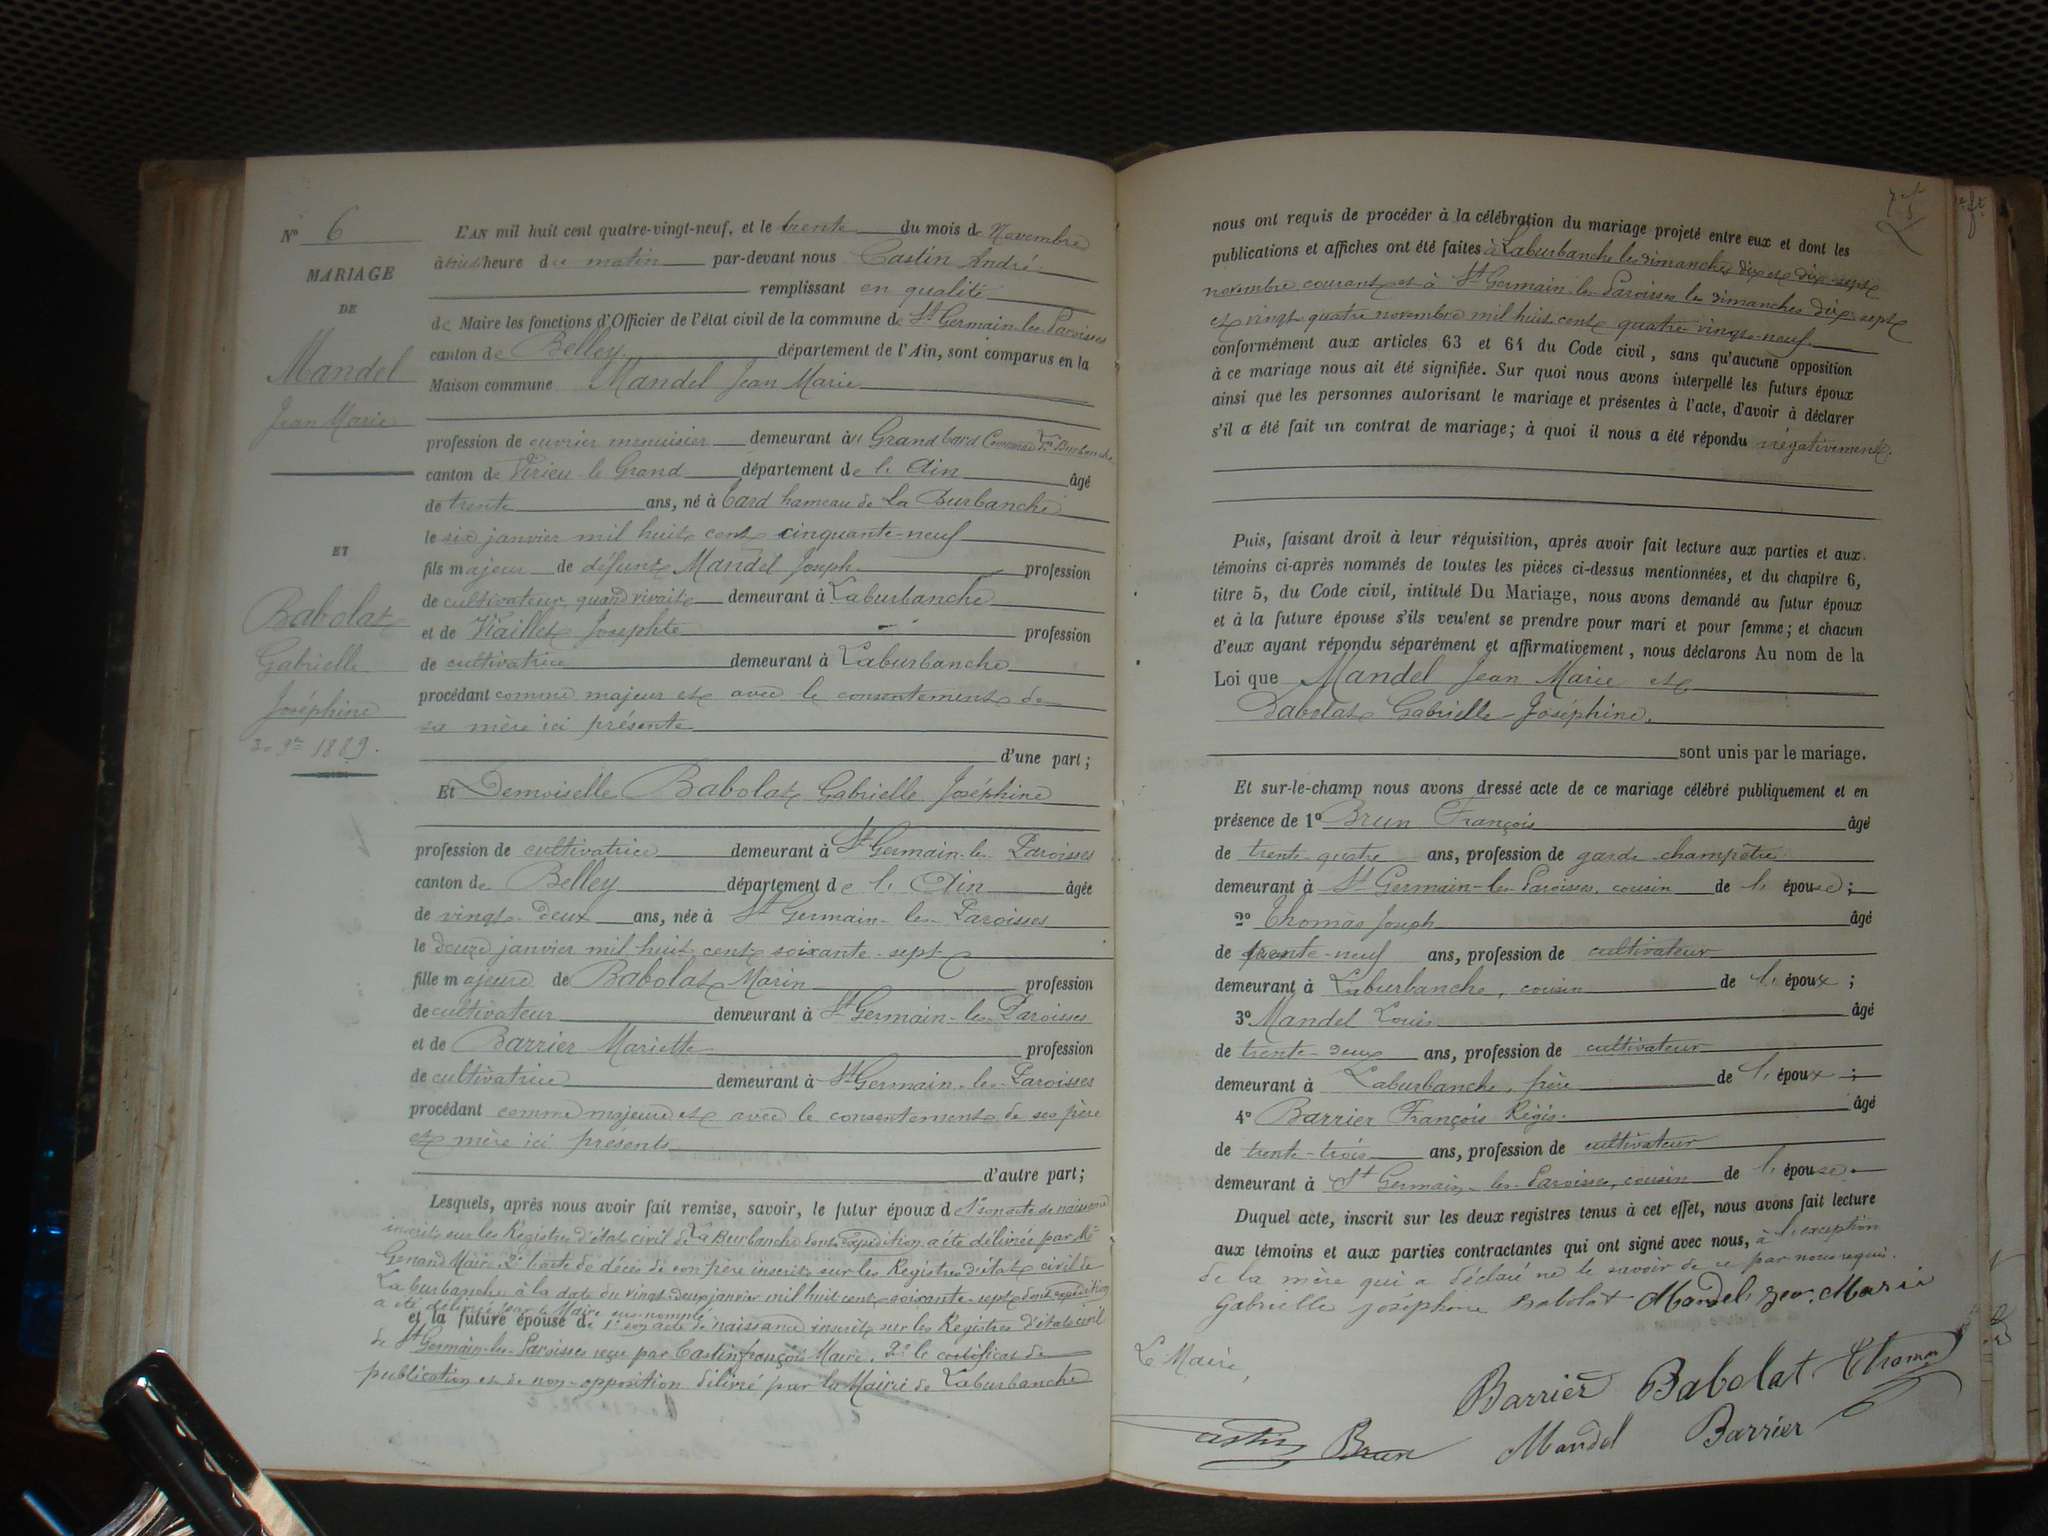 N° 6
MARIAGE
DE
Mandel
Jean Marie
ET
Babolat
Gabrielle
Joséphine
30 9bre 1889.
L'AN mil huit cent quatre-vingt-neuf, et le trente du mois de Novembre
à huit heure du matin par-devant nous Castin André
remplissant en qualité
de Maire les fonctions d'Officier de l'état civil de la commune de St Germain-les-Paroisses
canton de Belley département de l'Ain, sont comparus en la
Maison commune Mandel Jean Marie
profession de ouvrier menuisier demeurant à Grand bard Commune La Burbanche
canton de Virieu-le-Grand département de l'Ain âgé
de trente ans, né à bard hameau de La Burbanche
le six janvier mil huit cent cinquante-neuf
fils majeur de défunt Mandel Joseph profession
de cultivateur quand vivait demeurant à Laburbanche
et de Viaillet Josephte profession
de cultivatrice demeurant à Laburbanche
procédant comme majeur et avec le consentement de
sa mère ici présente
d'une part;
Et Demoiselle Babolat Gabrielle Joséphine
profession de cultivatrice demeurant à St Germain-les-Paroisses
canton de Belley département de l'Ain âgée
de vingt-deux ans, née à St Germain-les-Paroisses
le douze janvier mil huit cent soixante-sept
fille majeure de Babolat Marin profession
de cultivateur demeurant à St Germain-les-Paroisses
et de Barrier Mariette profession
de cultivatrice demeurant à St Germain-les-Paroisses
procédant comme majeure et avec le consentement de ses père
et mère ici presents
d'autre part;
Lesquels, après nous avoir fait remise, savoir, le futur époux d 1° son acte de naissance
inscrit sur les Registres d'état civil de La Burbanche dont expédition a été délivrée par Mr
Genand Maire 2° l'acte de décès de son père inscrit sur les Registres d'état civil de
La burbanche à la date du vingt-deux janvier mil huit cent soixante-sept dont expédition
a été délivrée par le Maire sus-nommé
et la future épouse de 1° son acte de naissance inscrit sur les Registres d'état civil
de St Germain-les-Paroisses reçu par Castin françois Maire. 2° le certificat de
publication et de non-opposition délivré par la Mairie de Laburbanche
nous ont requis de procéder à la célébration du mariage projeté entre eux et dont les
publications et affiches ont été faites à Laburbanche les dimanches dix et dix-sept
novembre courant et à St Germain-les-Paroisses les dimanches dix-sept
et vingt-quatre novembre mil huit cent quatre-vingt-neuf
conformément aux articles 63 et 64 du Code civil, sans qu'aucune opposition
à ce mariage nous ait été signifiée. Sur quoi nous avons interpellé les futurs époux
ainsi que les personnes autorisant le mariage et présentes à l'acte, d'avoir à déclarer
s'il a été fait un contrat de mariage; à quoi il nous a été répondu négativement.
Puis, faisant droit à leur réquisition, après avoir fait lecture aux parties et aux
témoins ci-après nommés de toutes les pièces ci-dessus mentionnées, et du chapitre 6,
titre 5, du Code civil, intitulé Du Mariage, nous avons demandé au futur époux
et à la future épouse s'ils veulent se prendre pour mari et pour femme; et chacun
d'eux ayant répondu séparément et affirmativement, nous déclarons Au nom de la
Loi que Mandel Jean Marie et
Babolat Gabrielle-Joséphine.
sont unis par le mariage.
Et sur-le-champ nous avons dressé acte de ce mariage célébré publiquement et en
présence de 1° Brun François âgé
de trente-quatre ans, profession de garde-champêtre
demeurant à St Germain-les-Paroisses, cousin de l'épouse;
2° Thomas Joseph âgé
de trente-neuf ans, profession de cultivateur
demeurant à Laburbanche, cousin de l'époux;
3° Mandel Louis âgé
de trente-deux ans, profession de cultivateur
demeurant à Laburbanche, frère de l'époux;
4° Barrier François Régis. âgé
de trente-trois ans, profession de cultivateur
demeurant à St Germain-les-Paroisses, cousin de l'épouse.
Duquel acte, inscrit sur les deux registres tenus à cet effet, nous avons fait lecture
aux témoins et aux parties contractantes qui ont signé avec nous, à l'exception
de la mère qui a déclaré ne le savoir de ce par nous requis.
Gabrielle joséphine babolat Mandel jean Marie
Le Maire,
Barrier Babolat Thomas
Castin Brun Mandel Barrier